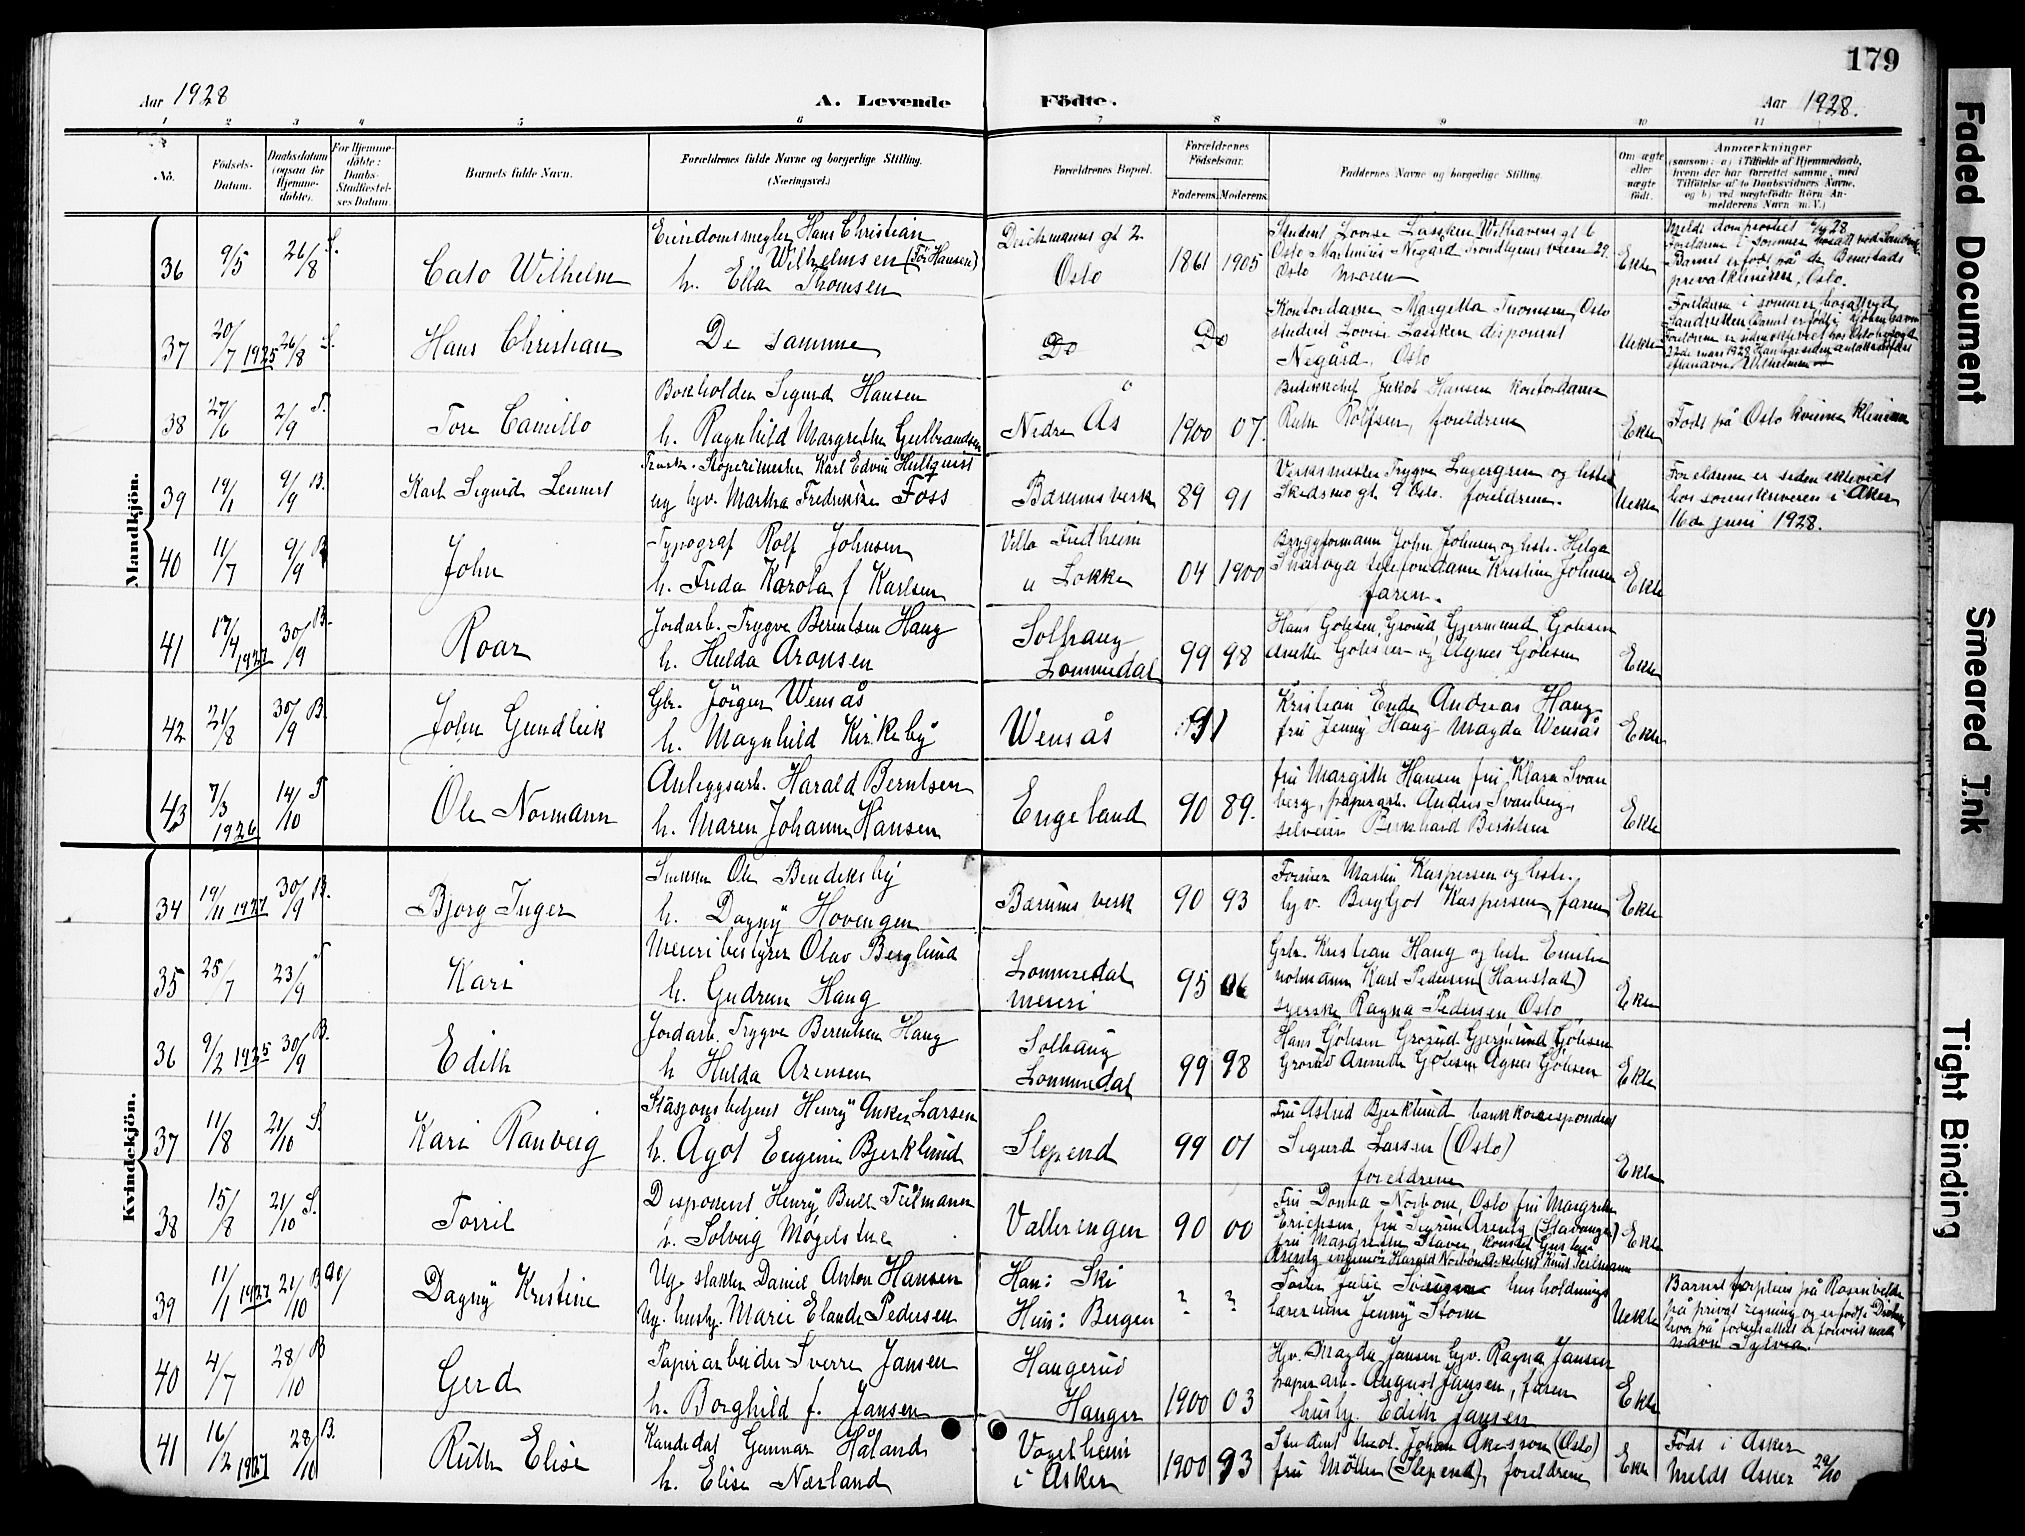 179
Aar 1928
A. Levende Födte.
Aar 1928.
1 2 3 4 5 6 7 8 9 10 11
No.
Födsels-Datum.
Daabsdatum (ogsaa for Hjemme-döbte).
For Hjemme-döbte: Daabs-Stadfæstel-ses Datum.
Barnets fulde Navn.
Forældrenes fulde Navne og borgerlige Stilling. (Næringsvei.)
Forældrenes Bopæl.
Forældrenes Födselsaar.
Faderens. Moderens.
Faddernes Navne og borgerlige Stilling.
Om ægte eller uægte födt.
Anmærkninger
(saasom: a) i Tilfælde af Hjemmedaab, hvem der har forrettet samme, med Tilføielse af to Daabsvidners Navne, og b) ved uægtefödte Börn An-melderens Navn m. V.)
Mandkjön.
36 9/5 26/8 S.
Cato Wilhelm
Eiendomsmegler Hans Christian
Wilhelmsen (Før Hansen)
h. Ella Thomsen
Deichmanns gt 2
Oslo
1861 1905
Student Lovise Lassken Wilhavens gt 6
Oslo Martinius Negård Trondhjems veien 29.
Oslo moren
Ekte
Meldt domprostiet 6/9 28
Foreldrene i sommer bosatt ved Sandvika
Barnet er født på de Benestads
privatklinikken, Oslo.
37 20/7 1925 26/8 S.
Hans Christian
De samme
Do
Do
Kontordame Margetta Thomsen, Oslo
student Lovise Lassken disponent
Negård. Oslo
Uekte
Foreldrene i sommer bosatt ved
Sandvika. Barnet er født i Kjøbenhavn
Foreldrene er siden ekteviet hos Oslo byfogd
22de mars 1928
38 27/6 2/9 T.
Tore Camillo
Bokholder Sigurd Hansen
h. Ragnhild Margrethe Gulbrandsen
Nedre Ås
1900 07.
Butikkchef Jakob Hansen kontordame
Ruth Rolfsen, foreldrene
Ekte
Født på Oslo kvinne klinikk
39 19/1 9/9 B.
Karl Sigurd Lennert
Frask. Støperimester Karl Edvin Hultquist
ug hjv. Martha Fredrikke Foss
Bærums verk
89 91
Verksmester Trygve Lagergren og hustru
Skedsmo gt. 9 Oslo. foreldrene.
Uekte
Foreldrene er siden ekteviet
hos sorenskriveren i Aker
16de juni 1928.
40 11/7 9/9 B
John
Typograf Rolf Johnsen
h. Frida Karola f Karlsen
Villa Fredheim
u Løkke
04 1900
Bryggeformann John Johnsen og hstr. Helga
telefondame Kristine Johnsen
faren.
Ekte
41 17/4 1927 30/9 B.
Roar
Jordarb. Trygve Berntsen Haug
h. Hulda Aronsen
Solhaug
Lommedal
99 98
Hans Golisen, Grorud, Gjermund Golisen
Anette Golisen og Agnes Golisen
Ekte
42 21/8 30/9 B.
John Gundleik
Gbr. Jörgen Wensås
h. Magnhild Kirkeby
Wensås
Kristian Ende Andreas Haug
fru Jenny Haug Magda Wensås
Ekte
43 7/3 1926 14/10 T
Ole Normann
Anleggsarb. Harald Berntsen
h. Maren Johanne Hansen
Engeland
90 89.
fru Margith Hansen fru Klara Svan
berg, papirarb. Anders Svanberg,
selveier Bernhard Berntsen
Ekte
Kvindekjön.
34 19/11 1927 30/9 B.
Bjorg Inger
Ole Bendiksby
h. Dagny Hovengen
Bærums verk
90 93
Former Martin Kaspersen og hstr.
hjv. Bergljot Kaspersen, faren
Ekte
35 25/7 23/9 T
Kari
Meieribestyrer Olav Berglund
h. Gudrun Haug
Lommedal
meieri
95 06
Grbr. Kristian Haug og hstr Emilie
holmann Karl Pedersen (Haustad)
syerske Ragna Pedersen Oslo
Ekte
36 9/2 1925 30/9 B.
Edith
Jordarb. Trygve Berntsen Haug
h Hulda Aronsen
Solhaug
Lommedal
99 98
Hans Golisen Grorud Gjermund Golisen
Grorud Annette Golisen Agnes Golisen
Ekte
37 11/8 21/10 S.
Kari Ranveig
Stasjonsbetjent Henry Anker Larsen
h. Agot Eugenie Bjerklund
Slepend
99 01
Fru Astrid Bjerklund bankkorrespondent
Sigurd Larsen (Oslo)
foreldrene
Ekte
38 15/8 21/10 S.
Torril
Disponent Henry Bull Teilmann
h. Solveig Møgelstue
Valleringen
90 00
Fru Donna Norbom, Oslo fru Margrethe
Erichsen, fru Sigrun Arentz (Stavanger)
fru Margrethe Staver konsul Gustav
Arentz ingeniør Harald Norbom Arkitekt Knut Teilmann
Ekte
39 11/1 1927 21/10 B
Dagny Kristine
Ug. slakter Daniel Anton Hansen
Ug. husby. Marie Elande Pedersen
Han: Ski
Hun: Bergen
? ?
Søster Julie husholdnings
lærerinne Jenny Storm
Uekte
Barnet forpleies på Rosenvilde
på privat regning og er født i Drøbak,
hvor på fødselsattest er forevist med
navn Sylvia.
40 4/7 28/10 B
Gerd
Papirarbeider Sverre Jansen
h. Borghild f. Jansen
Haugerud
Hauger
1900 03
Hjv. Magda Jansen hjv. Ragna Jansen
papirarb. August Jansen, faren
husby. Edith Jansen
Ekte
41 16/2 1927 28/10 B.
Ruth Elise
Kandidat Gunnar Håland
h. Elise Nærland
Vogelheim
i Asker
1900 93
Student theol. Johan Akesson (Oslo)
fru Møller (Slepend), foreldrene
Ekte
Født i Asker
Meldt Asker 29/10
Faded Document
Smeared Ink
Tight Binding